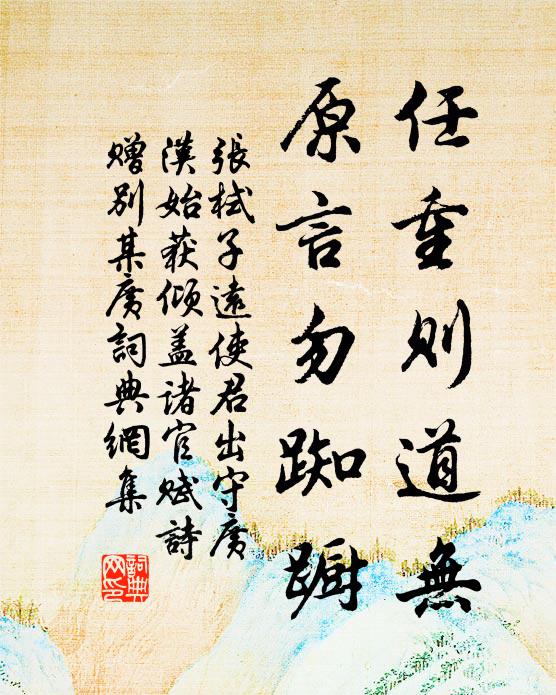 任重則道無
原言勿踟躕
張栻子遠使君出守廣
漢始获倾盖诸官赋詩
贈别某廣詞典網集
詞典
网印